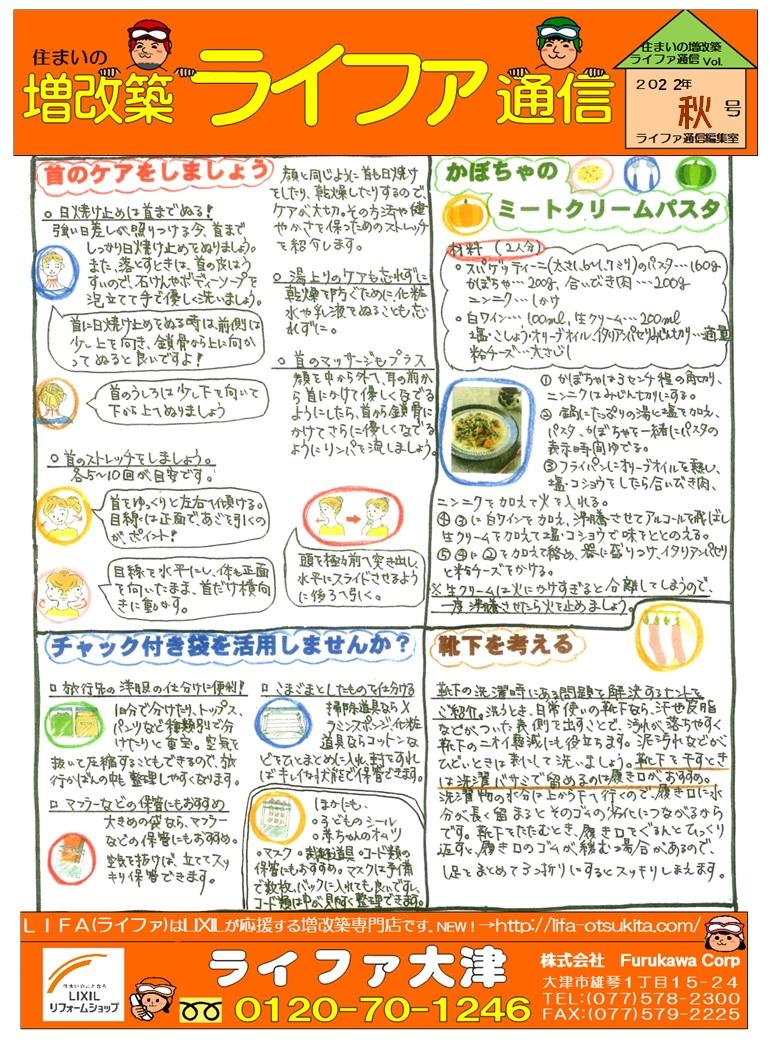 住まいの
増改築 ライファ 通信
住まいの増改築
ライファ通信 Vol.
2022年
秋号
ライファ通信編集室
首のケアをしましょう
○ 日焼け止めは首までぬる!
強い日差しが照りつける今、首まで
しっかり日焼け止めをぬりましょう。
また、落とすときは、首の皮はう
すいので、石けんやボディーソープを
泡立てて手で優しく洗いましょう。
首に日焼け止めをぬる時は前側は
少し上を向き、鎖骨から上に向か
ってぬると良いですよ!
首のうしろは少し下を向いて
下から上へぬりましょう
○ 首のストレッチをしましょう。
各5〜10回が目安です。
首をゆっくりと左右へ傾ける。
目線は正面であごを引くの
がポイント!
目線を水平にし、体も正面
を向いたまま、首だけ横向
きに動かす。
顔と同じように首も日焼け
をしたり、乾燥したりするので
ケアが大切。その方法や健
やかさを保つためのストレッチ
を紹介します。
○ 湯上りのケアも忘れずに
乾燥を防ぐために化粧
水や乳液をぬることも忘
れずに。
○ 首のマッサージもプラス
顔を中から外へ、耳の前から
首にかけて優しくなでる
ようにしたら、首から鎖骨に
かけてさらに優しくなでる
ようにリンパを流しましょう。
頭を極力前へ突き出し、
水平にスライドさせるよう
に後ろへ引く。
かぼちゃの
ミートクリームパスタ
材料 (2人分)
○ スパゲッティーニ(太さ1.6ミリ)のパスタ…160g
かぼちゃ…200g、合いびき肉…200g
ニンニク…1かけ
○ 白ワイン…100ml、生クリーム…200ml
塩・こしょう・オリーブオイル、イタリアンパセリみじん切り…適量
粉チーズ…大さじ1
① かぼちゃは3センチ程の角切り、
ニンニクはみじん切りにする。
② 鍋にたっぷりの湯と塩を加え、
パスタ、かぼちゃを一緒にパスタの
表示時間ゆでる。
③ フライパンにオリーブオイルを熱し、
塩・コショウをしたら合いびき肉、
ニンニクを加えて火を入れる。
④ ③に白ワインを加え、沸騰させてアルコールを飛ばし
生クリームを加えて塩・コショウで味をととのえる。
⑤ ④に②を加えて絡め、器に盛りつけ、イタリアンパセリ
と粉チーズをかける。
※ 生クリームは火にかけすぎると分離してしまうので、
一度沸騰させたら火を止めましょう。
チャック付き袋を活用しませんか?
○ 旅行先の洋服の仕分けに便利!
1日分で分けたり、トップス、
パンツなど種類別で分
けたりと重宝。空気を
抜いて圧縮することもできるので、旅
行かばんの中も整理しやすくなります。
○ マフラーなどの保管にもおすすめ
大きめの袋なら、マフラー
などの保管にもおすすめ。
空気を抜けば、立ててスッ
キリ保管できます。
○ こまごまとしたものを仕分ける
掃除道具ならメ
ラミンスポンジ、化粧
道具ならコットンな
どをひとまとめに入れ、封をしてお
けばキレイな状態をで保管できます。
ほかにも、
○ 子どものシール
○ 赤ちゃんのオムツ
○ マスク ○ 裁縫道具 ○ コード類の
保管にもおすすめ。マスクは予備
で数枚、バックに入れても良いです。
コード類は中が見やすく整理できます。
靴下を考える
靴下の洗濯時にある問題を解決するヒントを
ご紹介。洗うとき、日常使いの靴下なら、汗や皮脂
などがついた表側を出すことで、汚れが落ちやすく
靴下のニオイ軽減にも役立ちます。泥汚れなどが
ひどいときは表にして洗いましょう。靴下を干すとき
は洗濯バサミで留めるのは履き口がおすすめ。
洗濯物の水分は上から下へ行くので、履き口に水
分が長く留まるとそのゴムの劣化につながるから
です。靴下をたたむとき、履き口でくるんとひっくり
返すと、履き口のゴムが緩む場合があるので、
1足をまとめて3つ折りにするとスッキリしまえます。
LIFA(ライファ)はLIXILが応援する増改築専門店です。NEW!→http://lifa-otsukita.com/
住まいのことなら
LIXIL
リフォームショップ
ライファ大津
0120-70-1246
株式会社 Furukawa Corp
大津市雄琴1丁目15-24
TEL:(077)578-2300
FAX:(077)579-2225